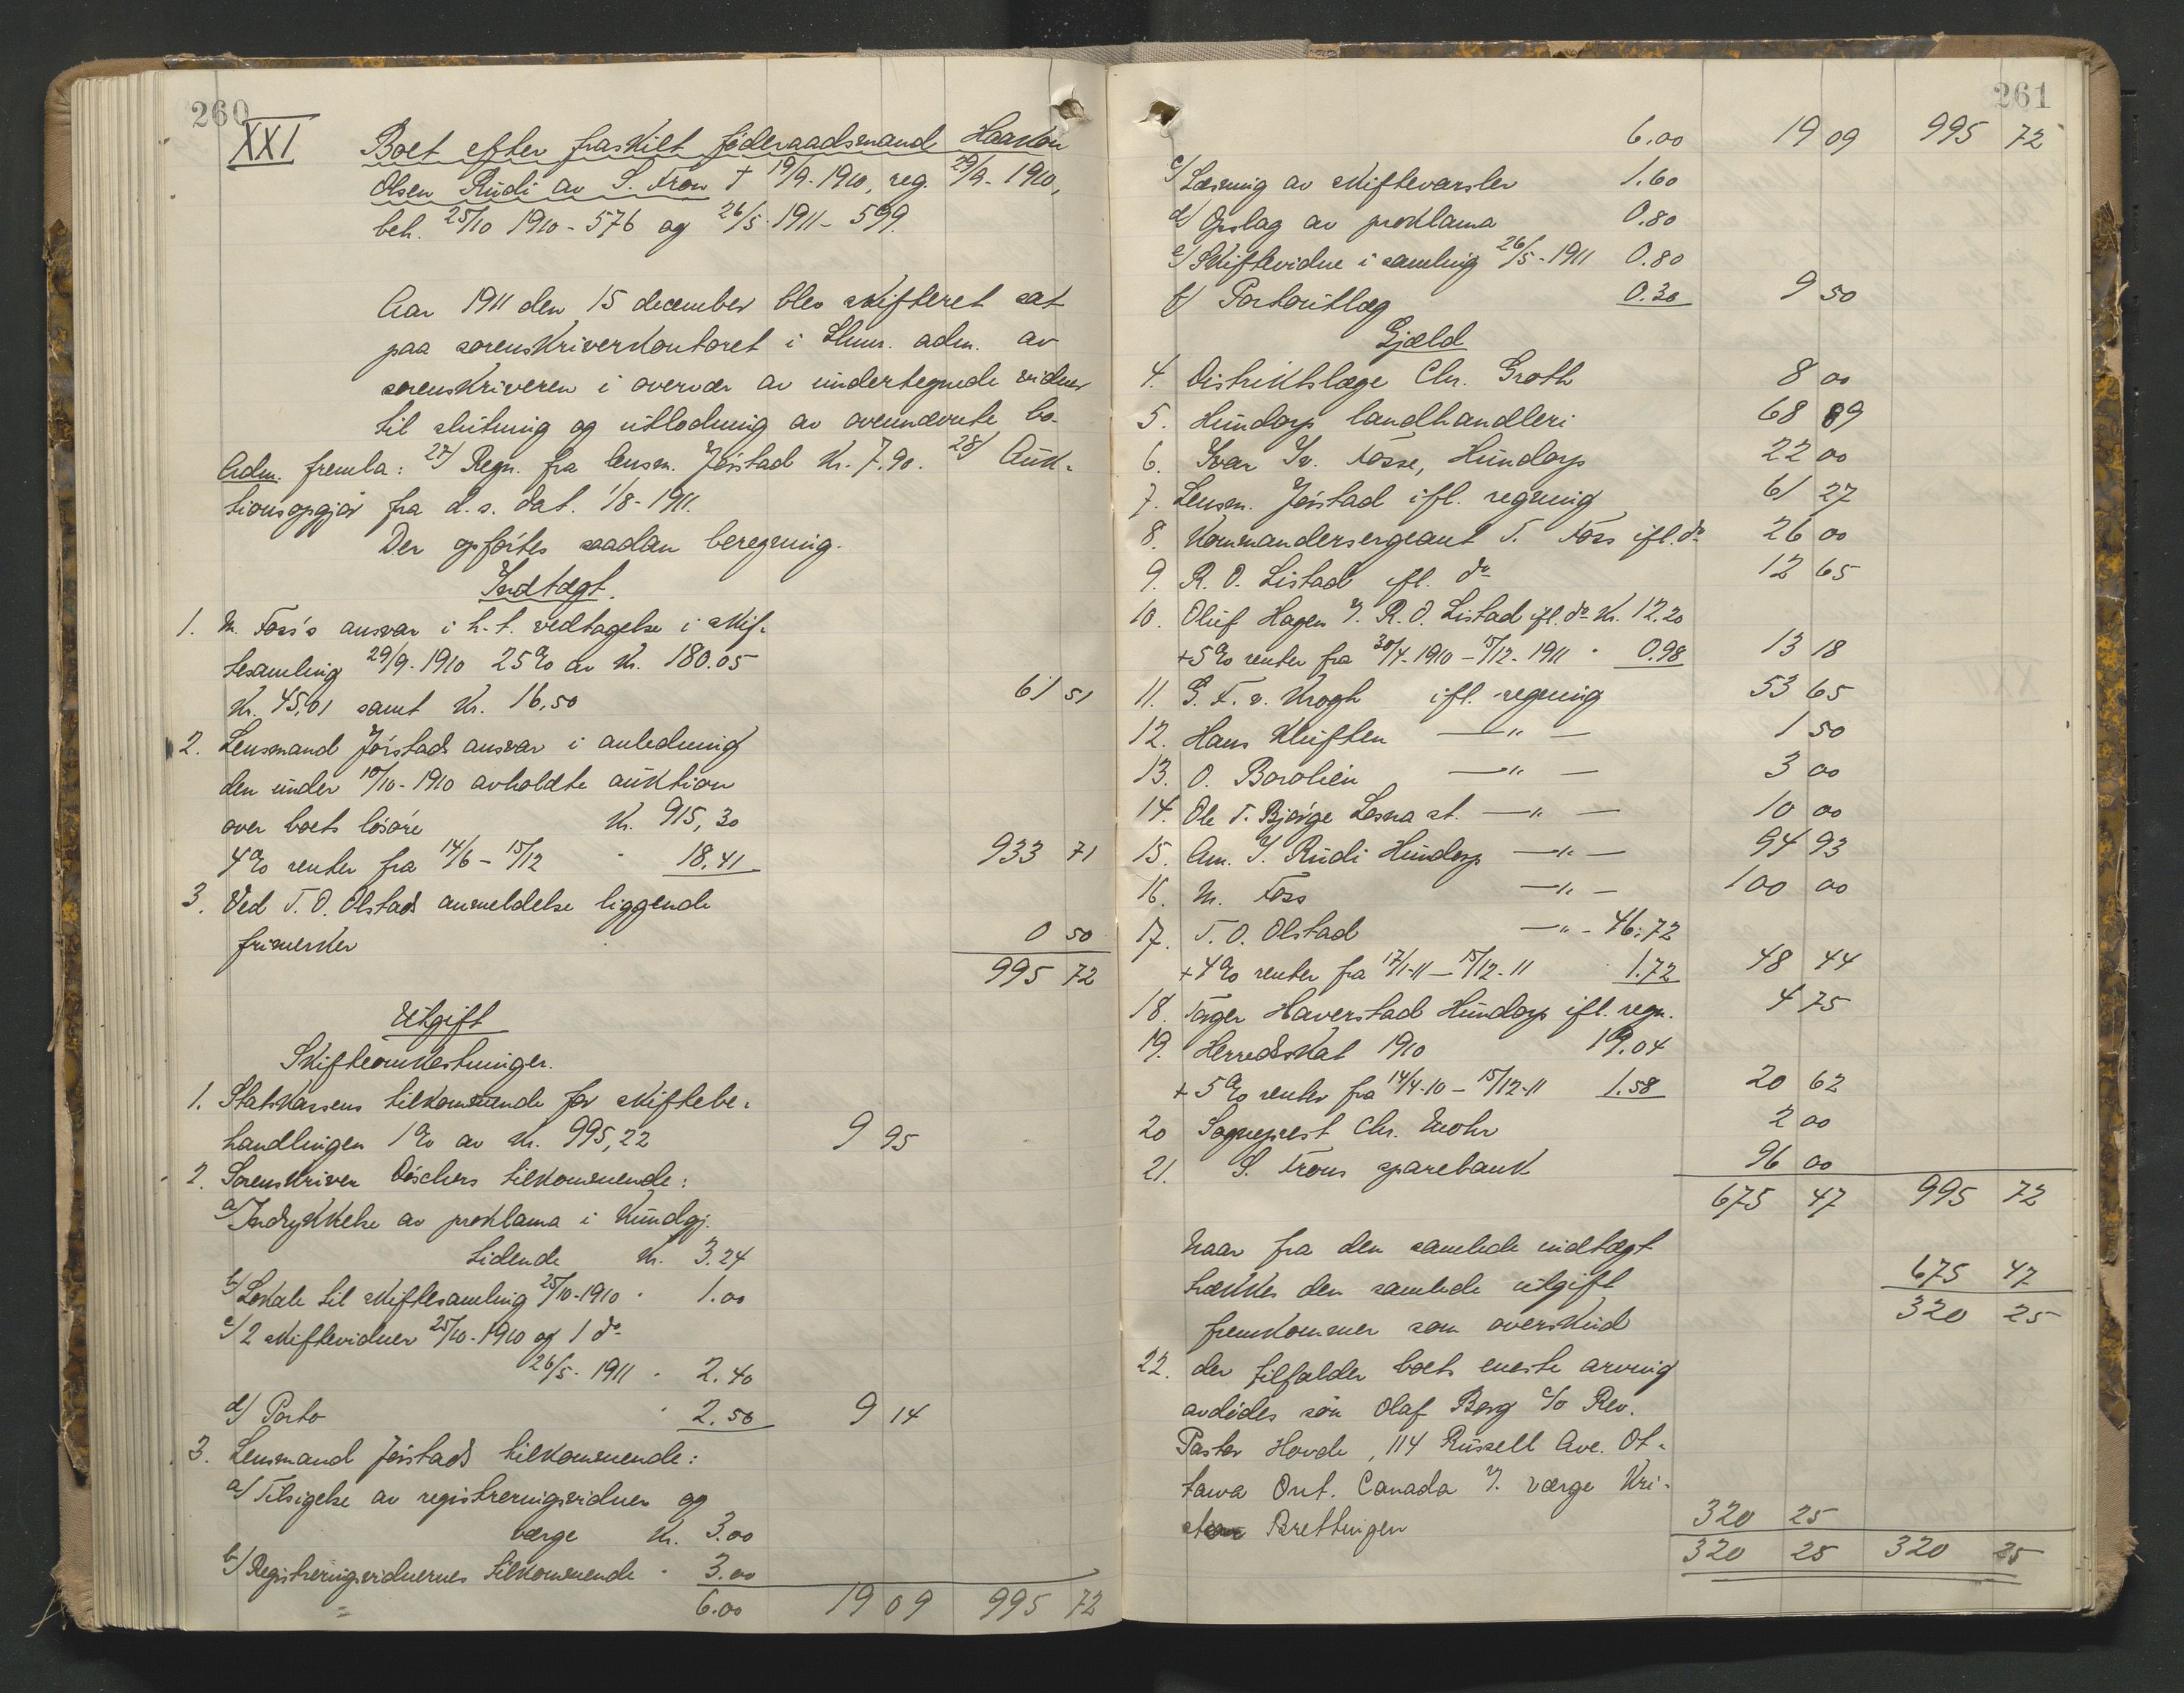 260
XXI Boet efter fraskilt föderaadsmand Haakon
Olsen Rudi av S. Fron † 19/9-1910, reg. 29/9-1910,
beh. 25/10 1910-576 og 26/5-1911-599.
Aar 1911 den 15 december blev skifteret sat
paa sorenskriverkontoret i Lhmr. adm. av
sorenskriveren i overvær av undertegnede vidner
til slutning og utlodning av ovennævnte bo.
Adm. fremla: 27) Regn. fra lensm. Jörstad Kr. 7.90. 28) Auk-
tionsopgjör fra d. s. dat. 1/8-1911.
Der opförtes saadan beregning.
Indtægt.
1. M. Foss's ansvar i h. t. vedtagelse i skif-
tesamling 29/9-1910 25% av Kr. 180.05
Kr. 45,01 samt Kr. 16,50 61 51
2. Lensmand Jörstads ansvar i anledning
den under 10/10-1910 avholdte auktion
over boets lösöre Kr. 915,30
4% renter fra 14/6-15/12 " 18.41 933 71
3. Ved T. O. Olstads anmeldelse liggende
frimerker 0 50
995 72
Utgift
Skifteomkostninger.
1. Statskassens tilkommende for skiftebe-
handlingen 1% av Kr. 995,22 9 95
2. Sorenskriver Döschers tilkommende:
a) Indrykkelse av proklama i Kundgj.
tidende Kr. 3.24
b) Lokale til skiftesamling 25/10-1910 " 1.00
c) 2 skiftevidner 25/10-1910 og 1 do
26/5-1911 " 2.40
d) Porto " 2.50 9 14
3. Lensmand Jörstads tilkommende:
a) Tilsigelse av registreringsvidner og
værge Kr. 3.00
b) Registreringsvidnernes tilkommende " 3.00
6.00 19 09 995 72
261
6.00 19 09 995 72
c) Læsning av skiftevarsler 1.60
d) Opslag av proklama 0.80
e) Skiftevidne i samling 26/5-1911 0.80
f) Portoutlæg 0.30 9 50
Gjæld
4. Distriktslæge Chr. Groth 8 00
5. Hundorp landhandleri 68 89
6. Ivar Iv. Fosse, Hundorp 22 00
7. Lensm. Jörstad ifl. regning 61 27
8. Kommandersergeant T. Foss ifl. do 26 00
9. R. O. Listad ifl. do 12 65
10. Oluf Hagen v. R. O. Listad ifl. do Kr. 12.20
+5% renter fra 30/4-1910-15/12-1911 " 0.98 13 18
11. G. F. v. Krogh ifl. regning 53 65
12. Hans Kluften —"— 1 50
13. O. Borolien —"— 3 00
14. Ole T. Bjørge Losna st. —"— 10 00
15. Am. I. Rudi Hundorp —"— 94 93
16. M. Foss —"— 100 00
17. T. O. Olstad —"— 46.72
+4% renter fra 17/1-11-15/12-11 1.72 48 44
18. Tøger Haverstad Hundorp ifl. regn. 4 75
19. Herredsskat 1910 19.04
+5% renter fra 14/4-10-15/12-11 1.58 20 62
20 Sogneprest Chr. Mohr 2 00
21. S. Frons sparebank 96 00
675 47 995 72
Naar fra den samlede indtægt
trækkes den samlede utgift 675 47
fremkommer som overskud 320 25
22. der tilfalder boets eneste arving
avdödes sön Olaf Berg c/o Rev.
Pastor Hovde, 114 Russell Ave. Ot-
tawa Ont. Canada v. værge Kri-
stian Brettingen 320 25
320 25 320 25